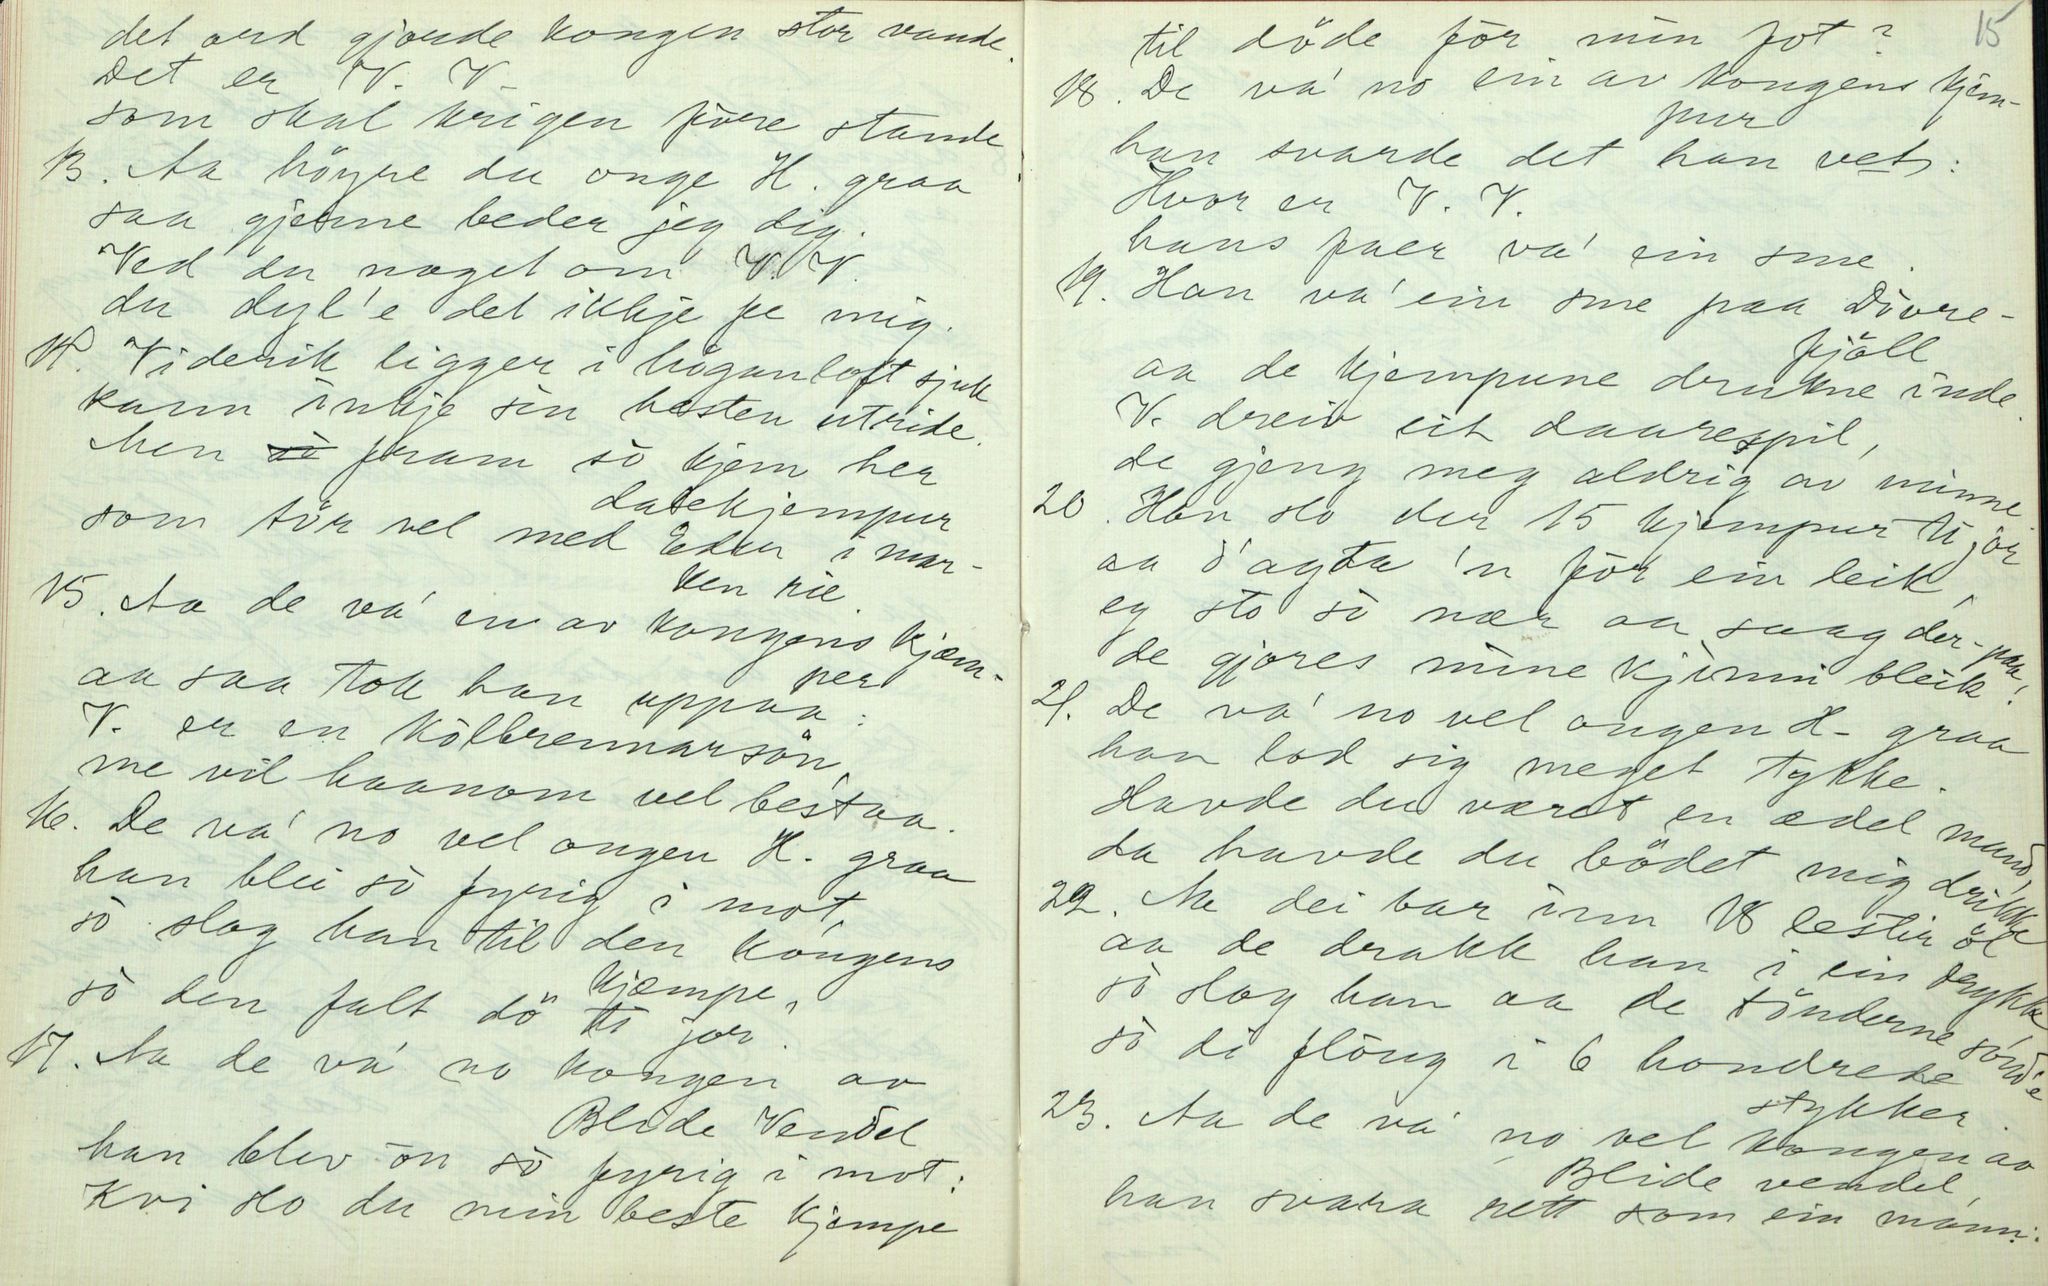 det ord gjorde kongen stor vande.
Det er V. V.
som skal krigen före stande
13. Aa höyre du onge H. graa
saa gjerne beder jeg dig.
Ved du noget om V. V.
du dyl'e det ikkje fe mig.
14. Viderik ligger i höganloft sjuk
kann inkje sin hesten utride.
Men fram so kjem her
datekjempur
som tör vel med Eder i mar-
ken rie.
15. Aa de va' en av kongens kjæm-
per
aa saa tok han uppaa:
V. er en kölbrennarsön,
me vil haanom vel bestaa.
16. De va' no vel ongen H. graa
han blei so fyrig i mot,
so slog han til den kongens
kjæmpe,
so den falt dö ti jor.
17. Aa de va' no kongen av
Blide Vendel
han blev ön so fyrig i mot:
Kvi slo du min beste kjempe
15
til döde för min fot?
18. De va' no ein av kongens kjem-
pur
han svarde det han vet:
Hvor er V. V.
hans faer va' ein sme.
19. Han va' ein sme paa Dovre-
fjäll
aa de kjempune drukne inde.
V. dreiv eit daarespil,
de gjeng meg aldrig av minne.
20. Han slo der 15 kjempur ti jor
aa o'agta 'n för ein leik,
eg sto so nær aa saag der-paa,
de gjores mine kjinni bleik!
21. De va' no vel ongen H. graa
han lod sig meget tykke.
Havde du været en ædel mand,
da havde du bödet mig drikke
22. Aa dei bar inn 18 lestir öl
aa de drakk han i ein drykke
so slog han aa de tönderne sönde
so di flöug i 6 hondrede
stykker.
23. Aa de va' no vel kongen av
Blide vendel,
han svara rett som ein mann: